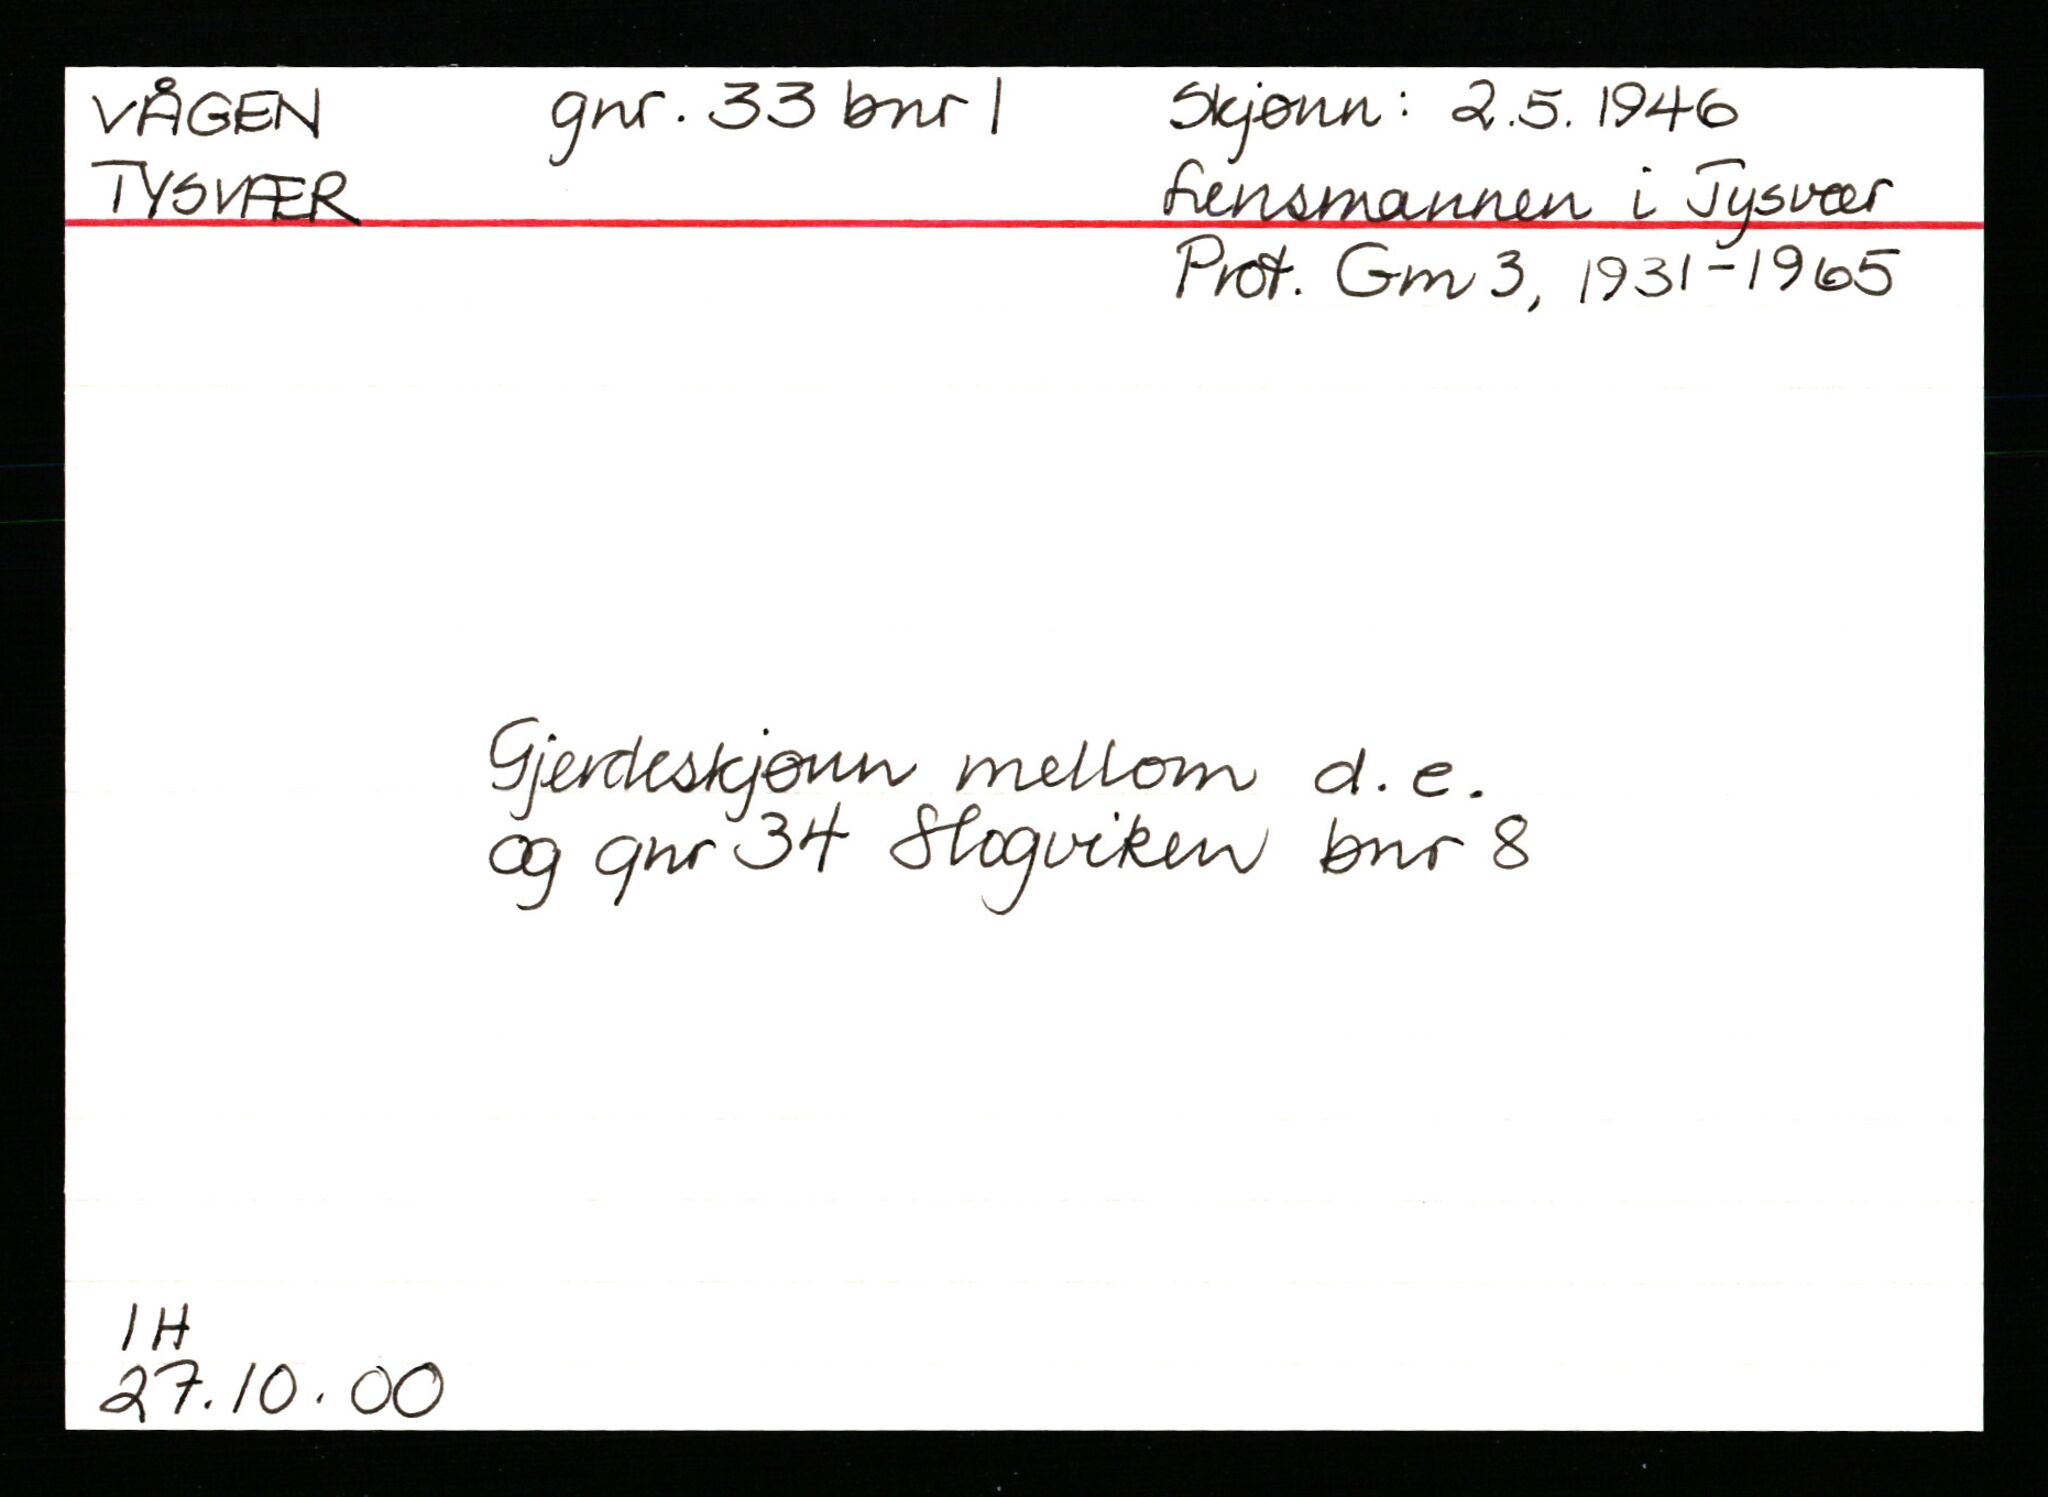 VÅGEN gnr. 33 bnr 1 Skjønn: 2.5.1946
TYSVÆR Lensmannen i Tysvær
Prot. Gm 3, 1931-1965
Gjerdeskjønn mellom d.e.
og gnr 34 Slogviken bnr 8
IH
27.10.00